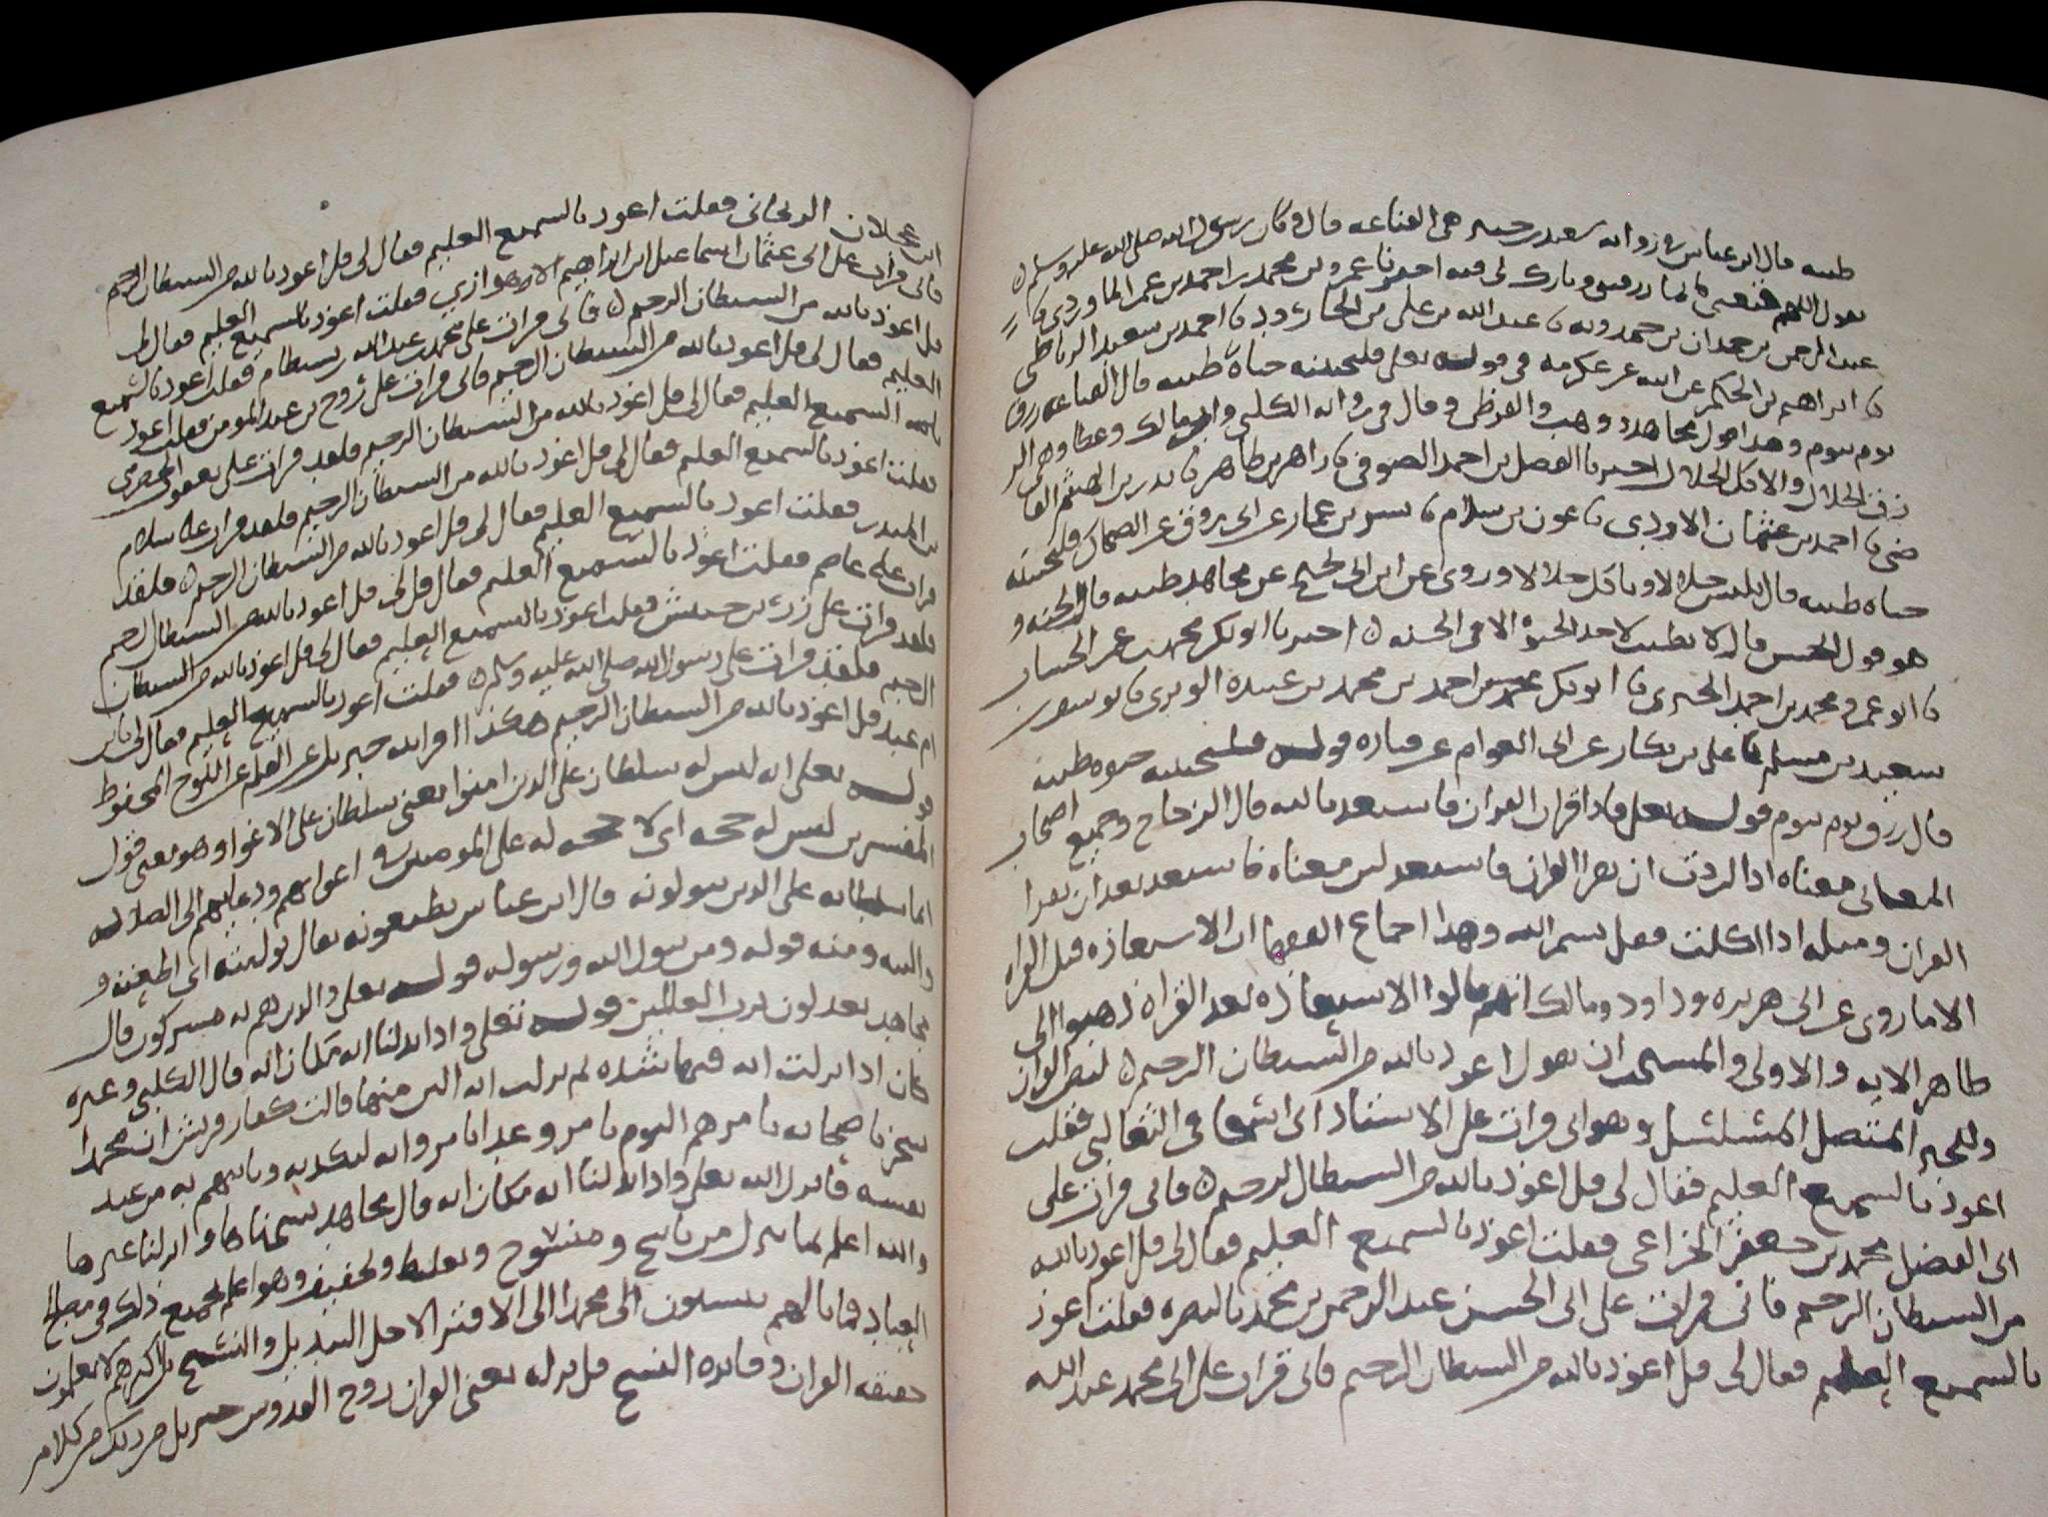 طيبه قال ابن عباس في رواية سعيد بن جبير هي القناعه قال وكان رسول الله صلى الله عليه وسلم
يقول اللهم قنعني بما رزقتني وبارك لي فيه اخبرنا عمرو بن محمد بن احمد بن عمر الماوردي نا
عبد الرحمن بن حمدان بن حمدويه نا عبد الله بن علي بن الجارود نا احمد بن سعيد الرباطي
نا ابراهيم بن الحكم عن ابيه عن عكرمه في قوله تعلى فلنحيينه حياة طيبه قال القناعه رزق
يوم بيوم وهذا قول مجاهد ووهب والقرظي وقال في رواية الكلبي وابي مالك وعطا وهي الر
زق الحلال والاكل الحلال اخبرنا الفضل بن احمد الصوفي نا زاهر بن طاهر نا بدر بن الهيثم القا
ضي نا احمد بن عثمان الاودي نا عون بن سلام نا بشر بن عمار عن ابي روق عن الضحاك فلنحيينه
حياه طيبه قال يلبس حلالا وياكل حلالا وروى عن ابن ابي نجيح عن مجاهد طيبه قال الجنه و
هو قول الحسن قال لا يطيب لاحد الحيوة الا في الجنه اخبرنا ابو بكر محمد بن عمر
نا ابو عمرو محمد بن احمد الحيري نا ابو بكر محمد بن احمد بن محمد بن عبيدة الوبري نا
سعيد بن مسلم نا علي بن بكار عن ابي العوام عن قتاده قوله فلنحيينه حيوه طيبه
قال رزق يوم بيوم قوله تعلى فاذا قرات القران فاستعذ بالله قال الزجاج وجميع اصحاب
المعاني معناه اذا اردت ان تقرا القران فاستعذ ليس معناه فاستعذ بعد ان تقرا
القران ومثله اذا اكلت فقل بسم الله وهذا اجماع الفقها ان الاستعاذه قبل القراه
الا ما روى عن ابي هريره وداود ومالك انهم قالوا الاستعاذه بعد القراه ذهبوا الى
ظاهر الايه والاولى والمستحب ان يقول اعوذ بالله من الشيطان الرحيم لنص القران
وللخبر المتصل المتسلسل وهو اني قرات على الاستاذ ابي اسحاق الثعالبي فقلت
اعوذ بالسميع العليم فقال لي قل اعوذ بالله من الشيطان الرجيم فاني قرات على
ابي الفضل محمد بن جعفر الخزاعي فقلت اعوذ بالسميع العليم فقال لي قل اعوذ بالله
من الشيطان الرجيم فاني قرات على ابي الحسين عبد الرحمن بن محمد بالبصره فقلت اعوذ
بالسميع العليم فقال لي قل اعوذ بالله من الشيطان الرجيم فاني قرات على ابي محمد عبد الله
ابن عجلان الزنجاني فقلت اعوذ بالسميع العليم فقال لي قل اعوذ بالله من الشيطان الرجيم
فاني قرات على ابي عثمان اسماعيل ابن ابراهيم الاهوازي فقلت اعوذ بالسميع العليم فقال لي
قل اعوذ بالله من الشيطان الرجيم فاني قرات على محمد بن عبد الله بن بسطام فقلت اعوذ بالسميع
العليم فقال لي قل اعوذ بالله من الشيطان الرجيم فاني قرات على روح بن عبد المومن فقلت اعوذ
بالله السميع العليم فقال لي قل اعوذ بالله من الشيطان الرجيم فلقد قرات على يعقوب الحضرمي
فقلت اعوذ بالسميع العليم فقال لي قل اعوذ بالله من الشيطان الرجيم فلقد قرات على سلام
بن المنذر فقلت اعوذ بالسميع العليم فقال لي قل اعوذ بالله من الشيطان الرجيم فلقد
قرات على عاصم فقلت اعوذ بالسميع العليم فقال لي قل اعوذ بالله من الشيطان الرجيم
فلقد قرات على زر بن حبيش فقلت اعوذ بالسميع العليم فقال لي قل اعوذ بالله من الشيطان
الرجيم فلقد قرات على رسول الله صلى الله عليه وسلم فقلت اعوذ بالسميع العليم فقال لي يابن
ام عبد قل اعوذ بالله من الشيطان الرجيم هكذا اقرانيه جبريل عن القلم عن اللوح المحفوظ
قوله تعلى انه ليس له سلطان على الذين امنوا يعني سلطان على الاغوا وهو معنى قول
المفسرين ليس له حجه اي لا حجه له على المومنين في اغوايهم ودعايهم الى الضلاله
انما سلطانه على الذين يتولونه قال ابن عباس يطيعونه يقال توليته اي اطعته و
واليه ومنه قوله ومن يتول الله ورسوله قوله تعلى والذين هم به مشركون قال
مجاهد يعدلون برب العالمين قوله تعلى واذا بدلنا ايه مكان ايه قال الكلبي وغيره
كان اذا نزلت ايه فيها شده ثم نزلت ايه الين منها قالت كفار قريش ان محمدا
يسخر باصحابه يامرهم اليوم بامر وغدا بامر وانه ليكذبه وياتيهم به من عند
نفسه فانزل الله تعلى واذا بدلنا ايه مكان ايه قال مجاهد نسخناها وانزلنا غيرها
والله اعلم بما ينزل من ناسخ ومنسوخ وتغليظ وتخفيف وهو اعلم بجميع ذلك في مصالح
العباد فما بالهم ينسبون الى محمد الى الافترا لاجل التبديل والنسخ بل اكثرهم لا يعلمون
حقيقه القران وفايده النسخ قل نزله يعني القران روح القدوس جبريل من ربك من كلام